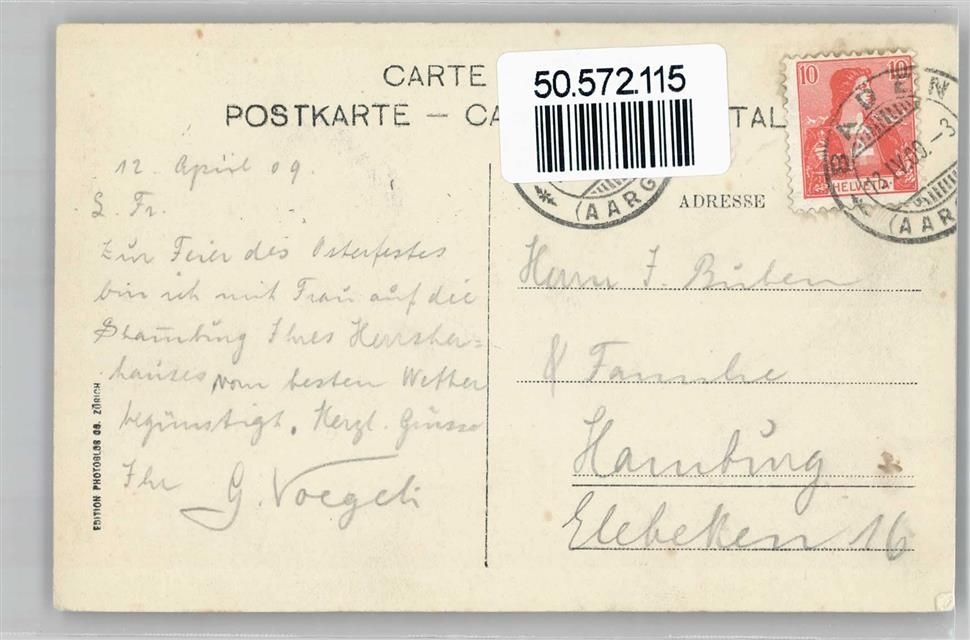 CARTE
POSTKARTE – CA TAL
50.572.115
10 10
HELVETIA
BADEN
12.IV.09.-3
(AARG
(AARG
ADRESSE
12. April 09.
L. Fr.
Zur Feier des Osterfestes
bin ich mit Frau auf die
Stammburg Ihres Herrscher=
hauses vom besten Wetter
begünstigt. Herzl. Grüsse
Ihr G. Voegeli
Herrn J. Buben
& Familie
Hamburg
Elebeken 16
EDITION PHOTOGLOB CO. ZÜRICH